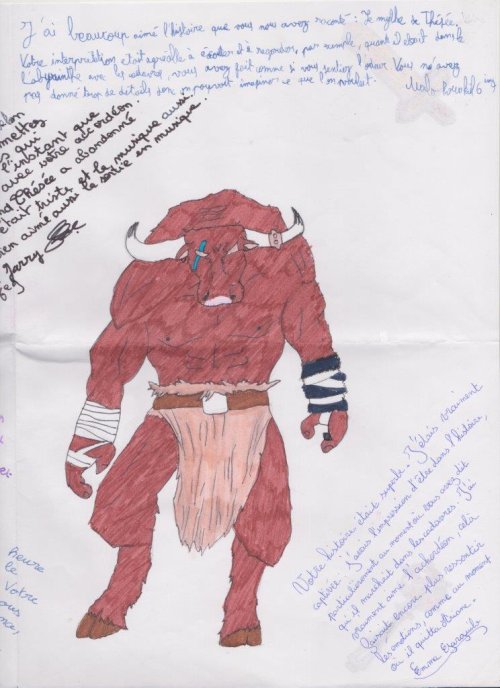 J'ai beaucoup aimé l'histoire que vous nous avez raconté : Le mythe de Thésée.
Votre interprétation était agréable à écouter et à regarder, par exemple, quand il était dans le
Labyrinthe avec les cadavres, vous avez fait comme si vous sentiez l'odeur. Vous ne avez
pas donné trop de détails donc on pouvait imaginer ce que l'on voulait.
mettez
es qui
l'instant que
avec votre accordéon.
Thésée a abandonné
était triste et la musique aussi.
bien aimé aussi la sortie en musique.
Jarry
Votre histoire était superbe. J'étais vraiment
captivée. J'avais l'impression d'être dans l'histoire,
particulièrement au moment où vous avez dit
qu'il marchait dans les cadavres. J'ai
vraiment aimé l'accordéon, cela
faisait encore plus ressortir
les émotions, comme au moment
où il quitta Ariane.
Emma
le Votre
ous